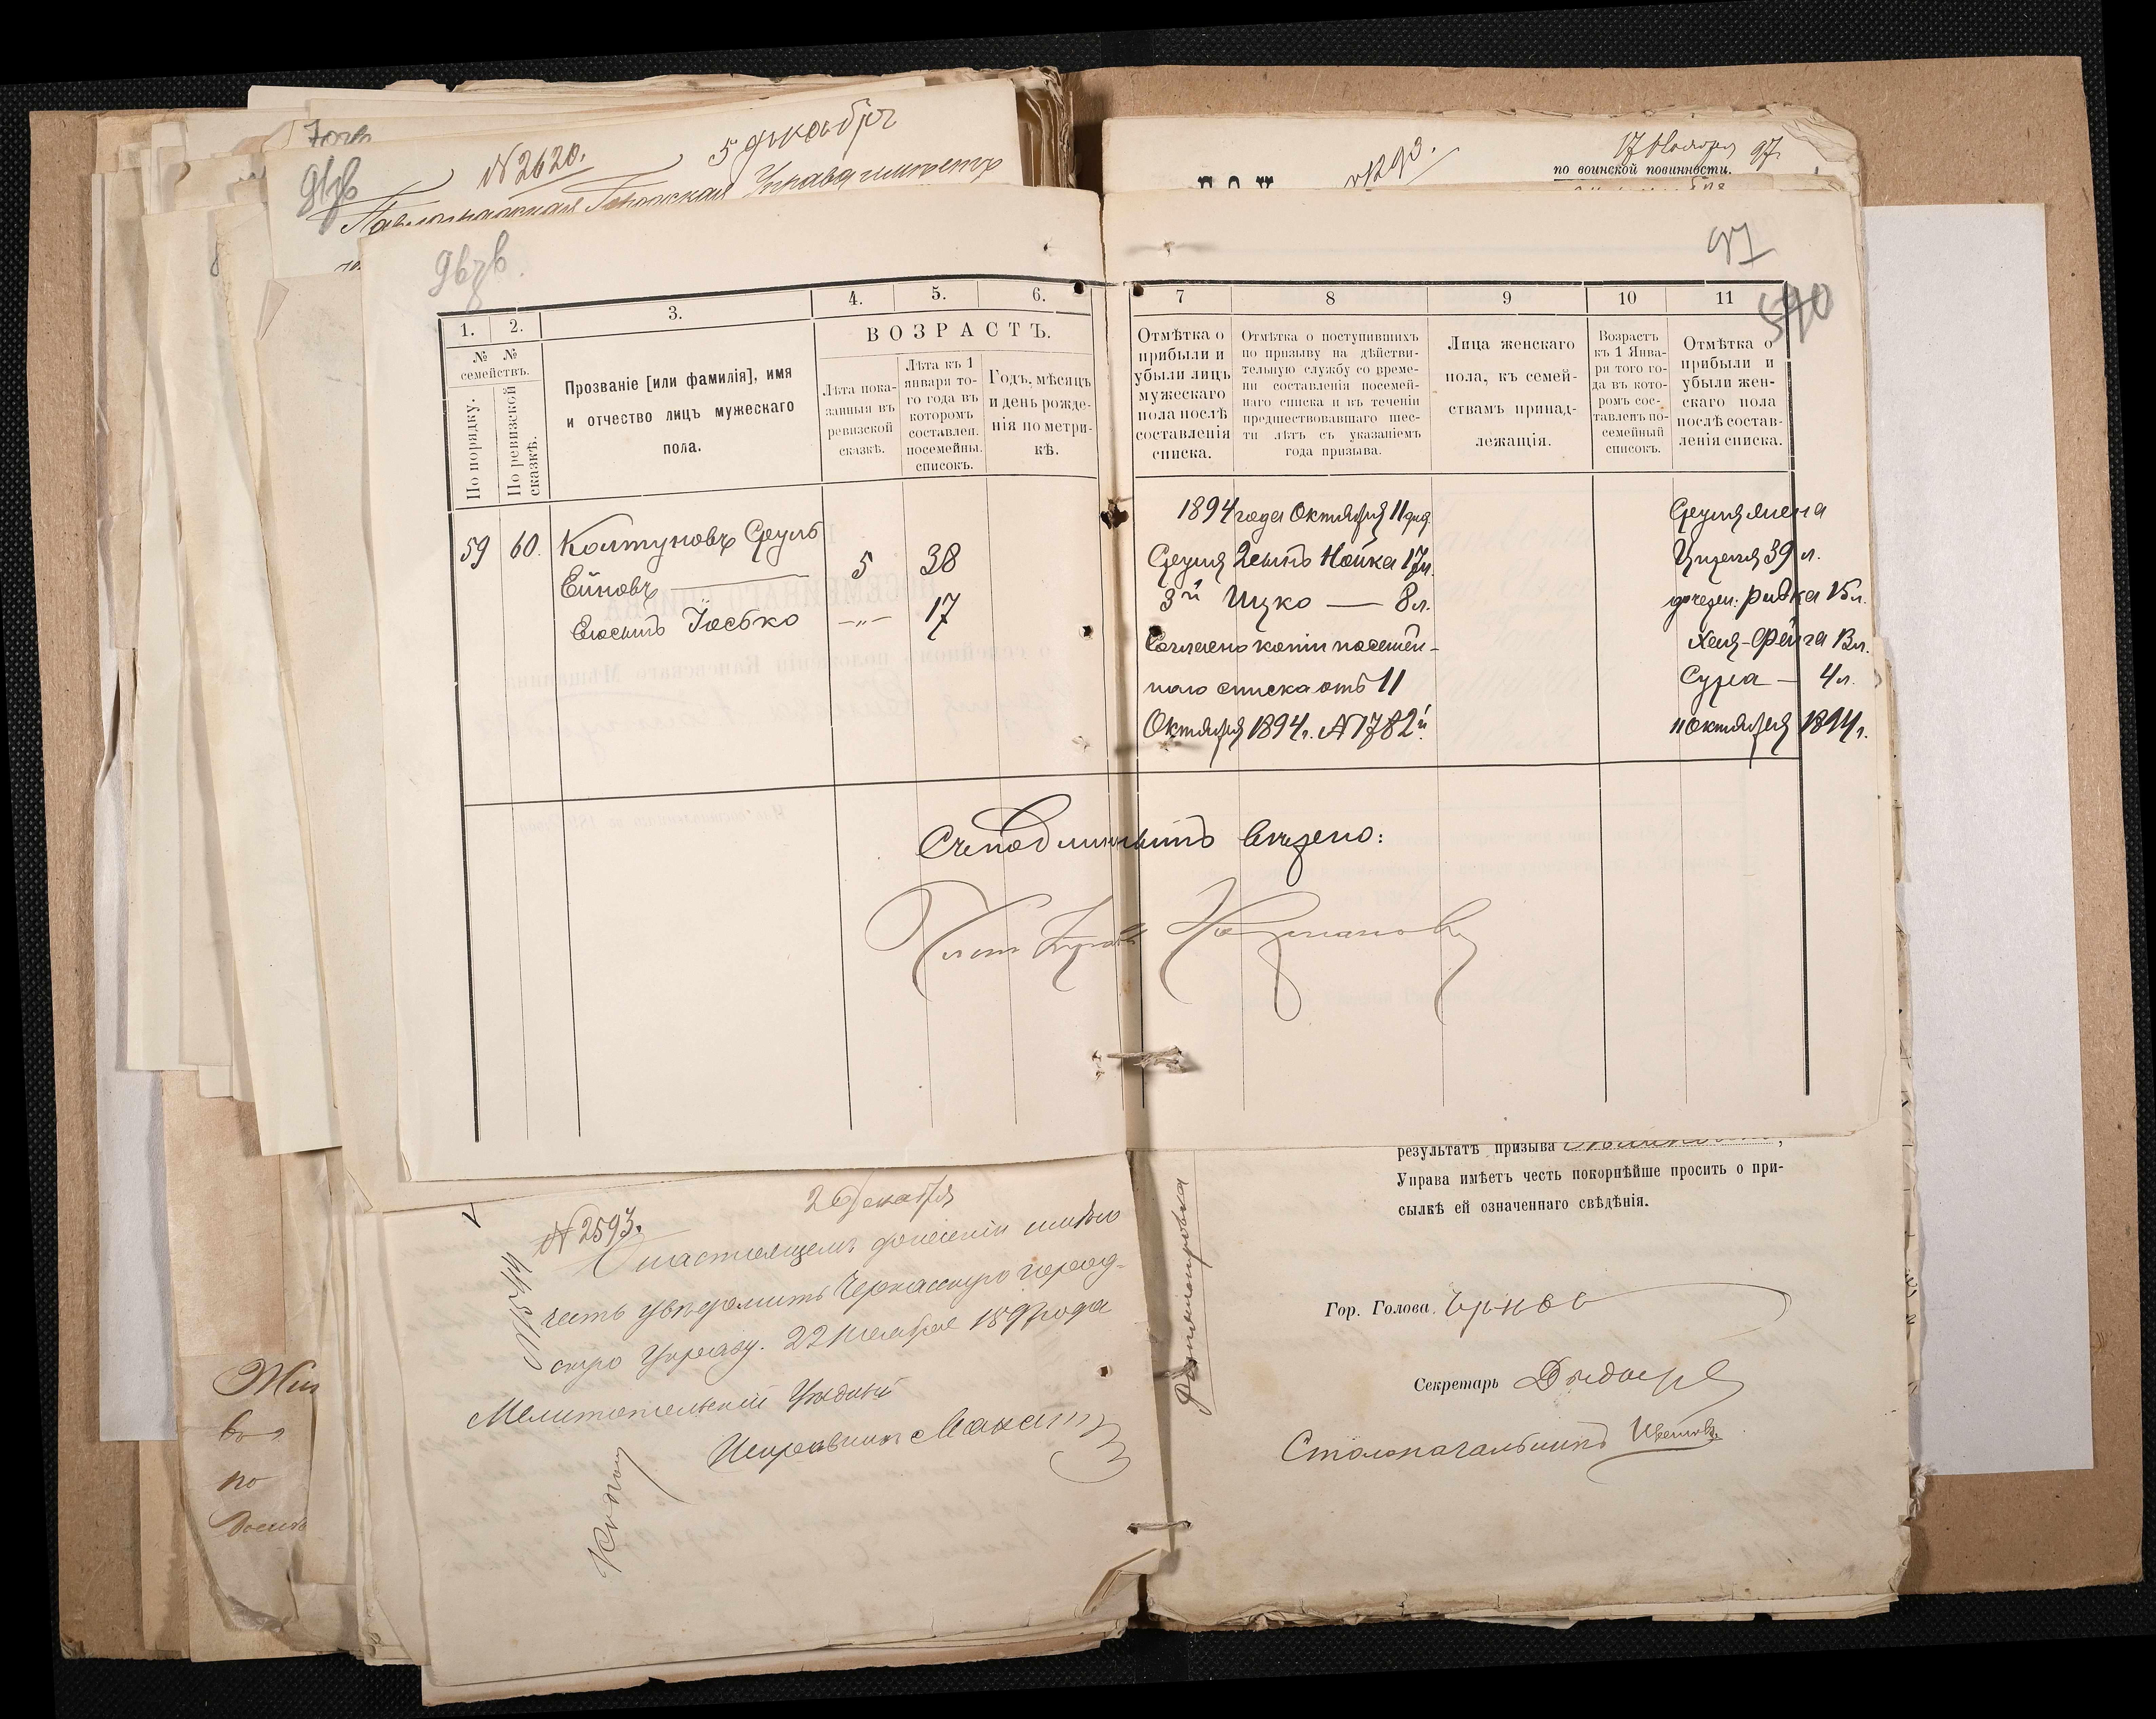 № 2620.
5 декабря
Городская Управа
№ 1293.
17 Ноября 97.
по воинской повинности.
97
540
1.
2.
3.
4.
5.
6.
7
8
9
10
11
№ №
семействъ.
По порядку.
По ревизской
сказкѣ.
Прозваніе [или фамилія], имя
и отчество лицъ мужескаго
пола.
ВОЗРАСТЪ.
Лѣта пока-
занныя въ
ревизской
сказкѣ.
Лѣта къ 1
января то-
го года въ
которомъ
составлен.
посемейны.
списокъ.
Годъ, мѣсяцъ
и день рожде-
нія по метри-
кѣ.
Отмѣтка о
прибыли и
убыли лицъ
мужескаго
пола послѣ
составленія
списка.
Отмѣтка о поступившихъ
по призыву на дѣйстви-
тельную службу со време-
ни составленія посемей-
наго списка и въ теченіи
предшествовавшаго шес-
ти лѣтъ съ указаніемъ
года призыва.
Лица женскаго
пола, къ семей-
ствамъ принад-
лежащія.
Возрастъ
къ 1 Янва-
ря того го-
да въ кото-
ромъ сос-
тавленъ по-
семейный
списокъ.
Отмѣтка о
прибыли и
убыли жен-
скаго пола
послѣ состав-
ленія списка.
59 60. Колтуновъ Сруль
Ейновъ 5 38
Его сынъ Іосько —„— 17
1894 года Октября 11 дня
Сруля 2 сынъ Нойка 17 л.
3й Ицко — 8 л.
Согласно копіи посемей-
наго списка отъ 11
Октября 1894 г. № 1782й
Сруля жена
39 л.
дочери: Ривка 15 л.
Хая-Фейга 13 л.
Сура — 4 л.
11 Октября 1894 г.
Съ подлиннымъ вѣрно:
результатъ призыва
Управа имѣетъ честь покорнѣйше просить о при-
сылкѣ ей означеннаго свѣдѣнія.
Гор. Голова
Секретарь
Столоначальникъ
2 Декабря
№ 2593.
О настоящемъ донесеніи имѣю
честь увѣдомить Черкасскую город-
скую Управу. 22 Ноября 1897 года
Мелитопольскій Уѣздный
Исправникъ